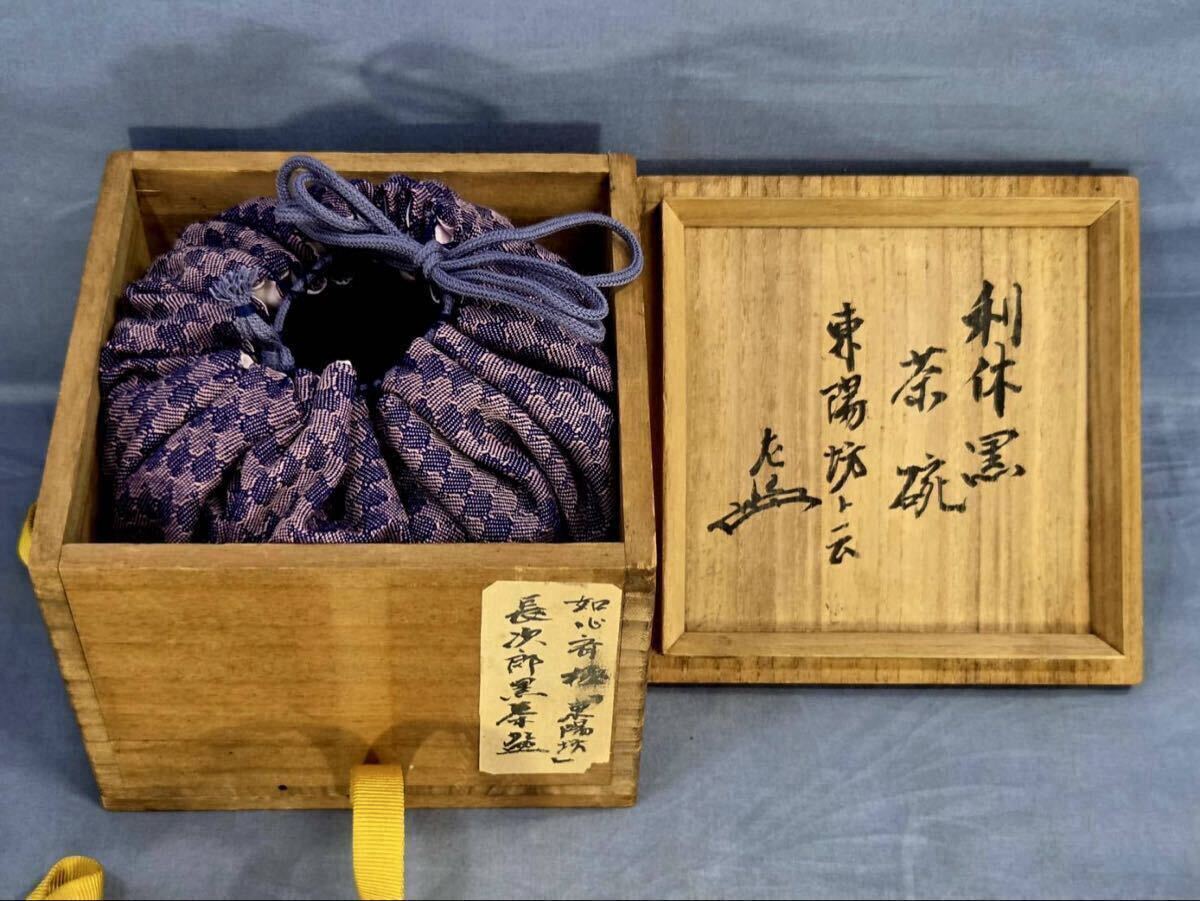 利休黒
茶碗
東陽坊ト云
左
如心斎極「東陽坊」
長次郎黒茶盌